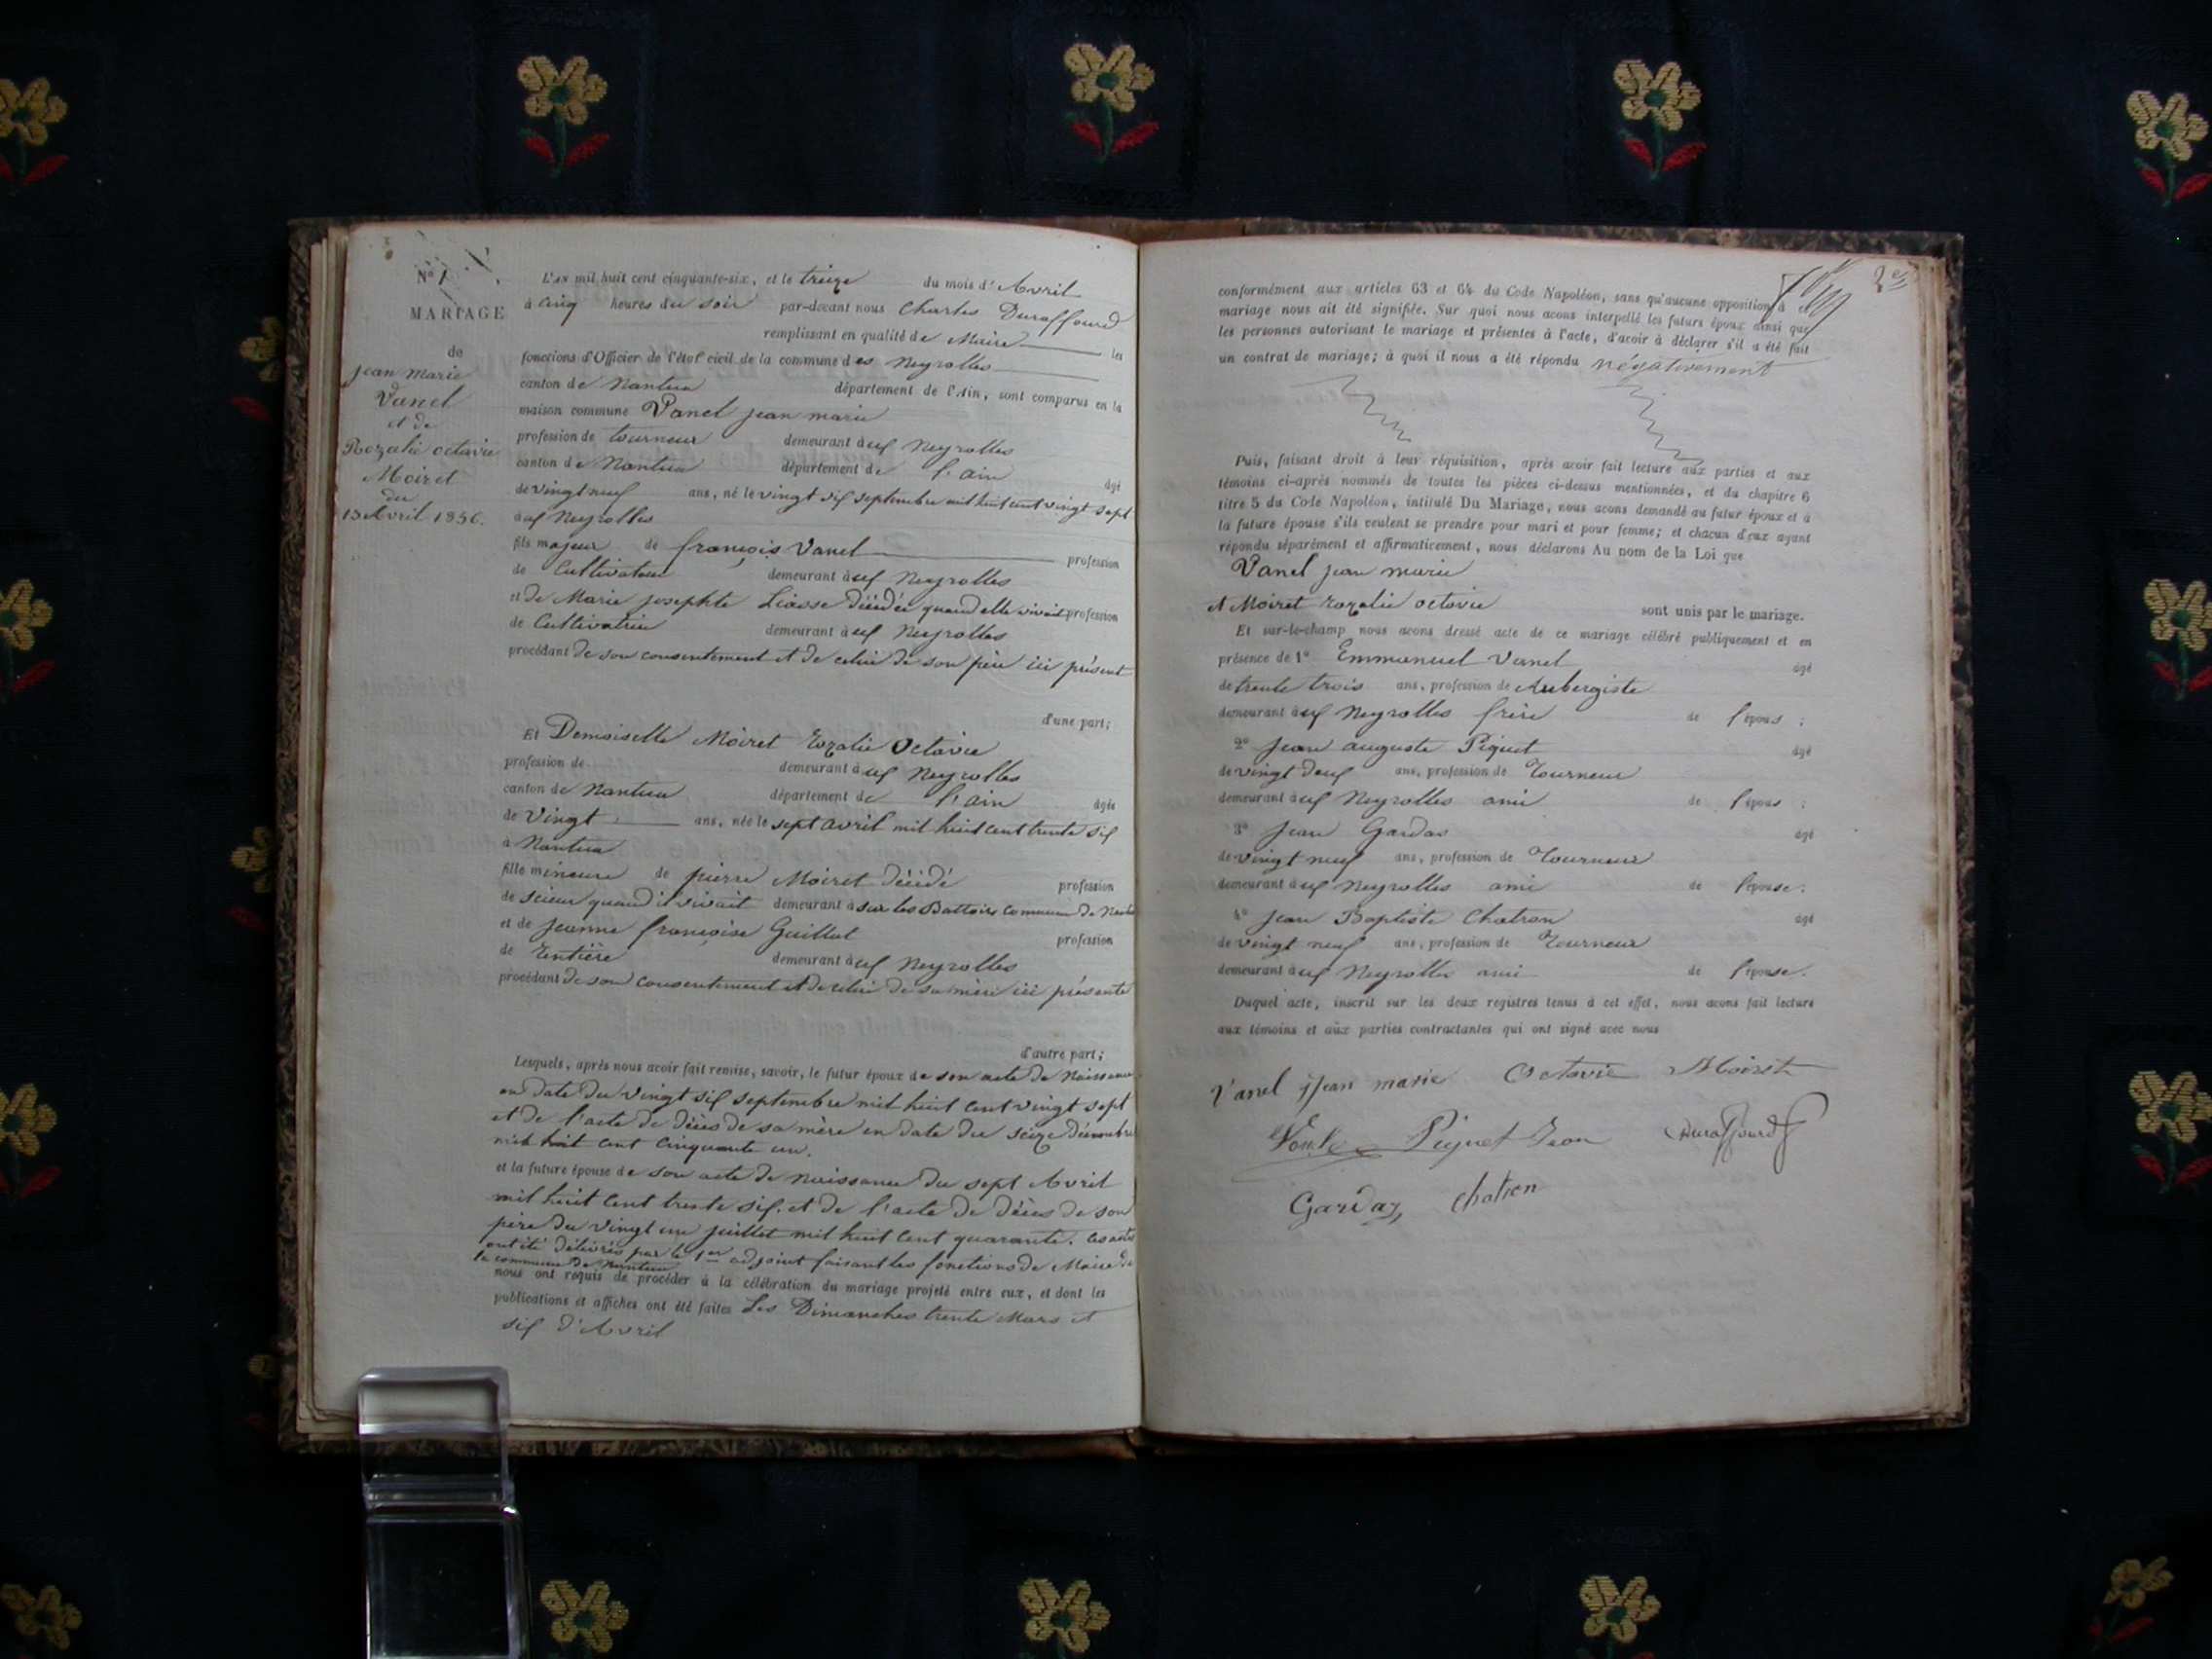 N° 1
MARIAGE
de
jean marie
Vanel
et de
Rozalie octavie
Moiret
du
13 Avril 1856.
L'an mil huit cent cinquante-six, et le treize du mois d'Avril
à cinq heures du soir par-devant nous Charles Duraffourd
remplissant en qualité de Maire les
fonctions d'Officier de l'état civil de la commune des Neyrolles
canton de Nantua département de l'Ain, sont comparus en la
maison commune Vanel jean marie
profession de tourneur demeurant aux Neyrolles
canton de Nantua département de l'ain âgé
de vingt neuf ans, né le vingt six septembre mil huit cent vingt sept
aux Neyrolles
fils majeur de françois Vanel profession
de Cultivateur demeurant aux Neyrolles
et de Marie josephte décédée quand elle vivait profession
de Cultivatrice demeurant aux Neyrolles
procédant de son consentement et de celui de son père ici présent
d'une part;
Et Demoiselle Moiret rozalie Octavie
profession de demeurant aux Neyrolles
canton de Nantua département de l'ain âgée
de vingt ans, née le sept avril mil huit cent trente six
à Nantua
fille mineure de pierre Moiret décédé profession
de scieur quand il vivait demeurant à sur les Battoirs commune de
et de Jeanne françoise Guillot profession
de rentière demeurant aux Neyrolles
procédant de son consentement et de celui de sa mère ici présente
d'autre part;
Lesquels, après nous avoir fait remise, savoir, le futur époux de son acte de Naissance
en date du vingt six septembre mil huit cent vingt sept
et de l'acte de décès de sa mère en date du seize décembre
mil huit cent cinquante un.
et la future épouse de son acte de naissance du sept Avril
mil huit cent trente six. et de l'acte de décès de son
père du vingt un juillet mil huit cent quarante. ces actes
ont été délivrés par le 1er adjoint faisant les fonctions de Maire de
la commune de Nantua
nous ont requis de procéder à la célébration du mariage projeté entre eux, et dont les
publications et affiches ont été faites Les Dimanches trente Mars et
six d'Avril
2e
conformément aux articles 63 et 64 du Code Napoléon, sans qu'aucune opposition à ce
mariage nous ait été signifiée. Sur quoi nous avons interpellé les futurs époux ainsi que
les personnes autorisant le mariage et présentes à l'acte, d'avoir à déclarer s'il a été fait
un contrat de mariage; à quoi il nous a été répondu négativement
Puis, faisant droit à leur réquisition, après avoir fait lecture aux parties et aux
témoins ci-après nommés de toutes les pièces ci-dessus mentionnées, et du chapitre 6
titre 5 du Code Napoléon, intitulé Du Mariage, nous avons demandé au futur époux et à
la future épouse s'ils veulent se prendre pour mari et pour femme; et chacun d'eux ayant
répondu séparément et affirmativement, nous déclarons Au nom de la Loi que
Vanel jean marie
et Moiret rozalie octavie sont unis par le mariage.
Et sur-le-champ nous avons dressé acte de ce mariage célébré publiquement et en
présence de 1° Emmanuel Vanel âgé
de trente trois ans, profession de Aubergiste
demeurant aux Neyrolles frère de l'époux;
2° Jean auguste Piquet âgé
de vingt deux ans, profession de Tourneur
demeurant aux Neyrolles ami de l'époux;
3° Jean Gardas âgé
de vingt neuf ans, profession de Tourneur
demeurant aux Neyrolles ami de l'épouse;
4° Jean Baptiste Chatron âgé
de vingt neuf ans, profession de Tourneur
demeurant aux Neyrolles ami de l'épouse.
Duquel acte, inscrit sur les deux registres tenus à cet effet, nous avons fait lecture
aux témoins et aux parties contractantes qui ont signé avec nous
Vanel jean marie Octavie Moiret
Piquet Jean Duraffourd
Garday Chatron